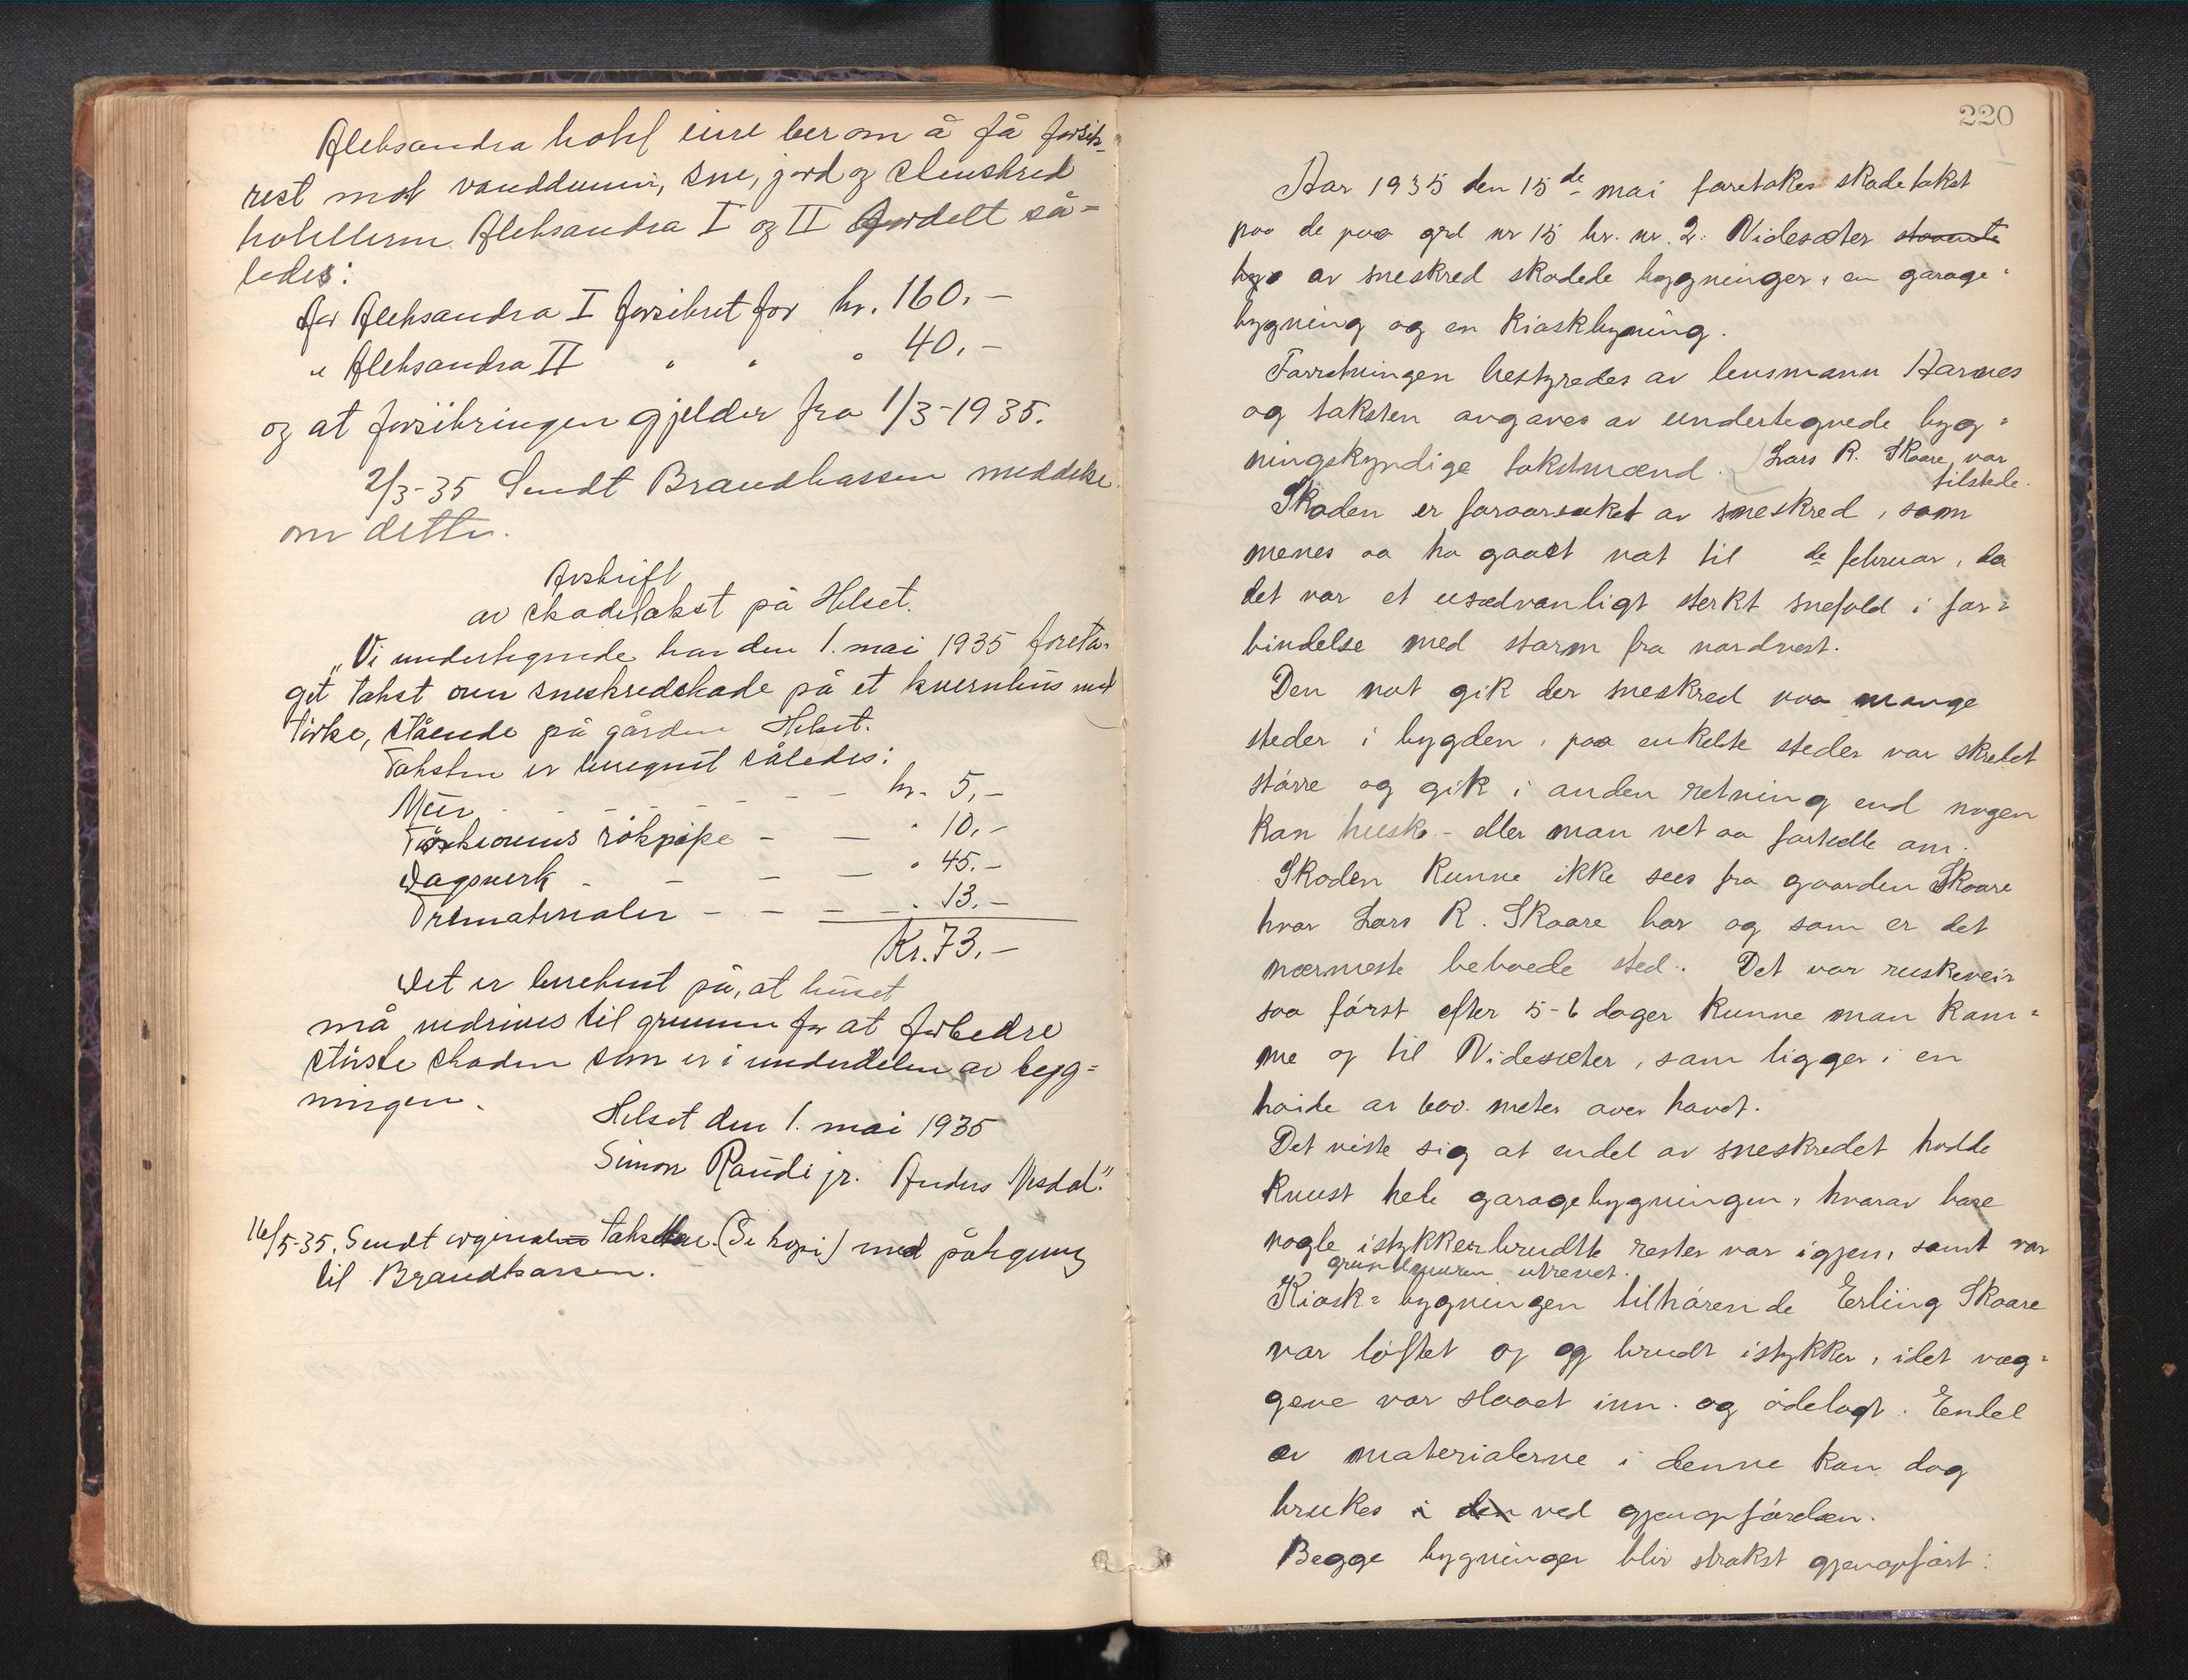 Aleksandra hotel eiere ber om å få forsik-
rest mot vanddunn, sne, jord og stenskred
hotellerne Aleksandra I og II fordelt så-
ledes:
for Aleksandra I forsikret for kr. 160,-
" Aleksandra II " " " 40,-
og at forsikringen gjelder fra 1/3-1935.
2/3-35 Sendt Brandkassen meddelse
om dette.
Avskrift
av skadetakst på Helset.
"Vi undertegnede har den 1. mai 1935 foreta-
get takst over sneskredskade på et kvernhus med
törke, stående på gården Helset.
Taksten er beregnet således:
Mur - - - - - - kr. 5,-
rökpipe - - " 10,-
Dagsverk - - - - " 45.-
Trematerialer - - - - " 13.-
Kr. 73,-
Det er berekent på, at huset
må nedrives til grunnen for at forbedre
störste skaden som er i underdelen av bygg-
ningen.
Helset den 1. mai 1935
Simon Raudi jr. Anders Mesdal."
16/5-35. Sendt orginalen takstene (Se kopi) med påtegning
til Brandkassen.
220
Aar 1935 den 15de mai foretokes skadetakst
paa de paa grd nr 15 br. nr. 2. Videsæter staaende
byg av sneskred skadede bygninger, en garage-
bygning og en Kioskbygning.
Forretningen bestyredes av lensmann Aarnes
og taksten avgaves av undertegnede byg-
ningskyndige takstmænd. Lars R. Skaare var
tilstede.
Skaden er foraarsaket av sneskred, som
menes aa ha gaaet nat til de februar, da
det var et usædvanligt sterkt snefald i for-
bindelse med storm fra nordvest.
Den nat gik der sneskred paa mange
steder i bygden, paa enkelte steder var skredet
större og gik i anden retning end nogen
kan huske - eller man vet aa fortælle om.
Skaden kunne ikke sees fra gaarden Skaare
hvor Lars R. Skaare bor og som er det
nærmeste beboede sted. Det var ruskeveir
saa först efter 5-6 dager kunne man kom-
me op til Videsæter, som ligger i en
höide av 600 meter over havet.
Det viste sig at endel av sneskredet hadde
knust hele garagebygningen, hvorav bare
nogle istykkerbrudte rester var igjen, samt var
grundmuren utrevet.
Kiosk-bygningen tilhörende Erling Skaare
var löftet op og brudt istykker, idet væg-
gene var slaaet inn og ödelagt. Endel
av materialerne i denne kan dog
brukes i den ved gjenopförelsen.
Begge bygninger blir strakst gjenopfört.